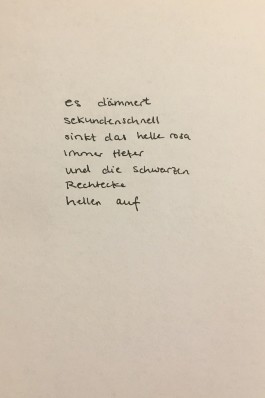 es dämmert
sekundenschnell
sinkt das helle rosa
immer tiefer
und die schwarzen
Rechtecke
hellen auf